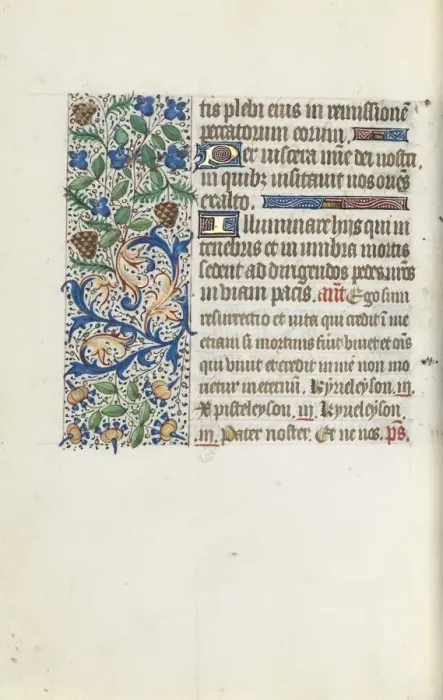 tis plebi eius in remissionē
peccatorum eorum.
Per viscera mīe dei nostri
in quibz visitavit nos oriēs
ex alto.
Illuminare hijs qui in
tenebris et in umbra mortis
sedent ad dirigendos pedes nr̄os
in viam pacis. añt Ego sum
resurrectio et vita qui credit ī me
etiam si mortuus fūit vivet et oīs
qui vivit et credit in me non mo
rietur in eternū. kyrieleyson. iij.
Xpisteleyson. iij. kyrieleyson.
iij. Pater noster. Et ne nos. p̄s.